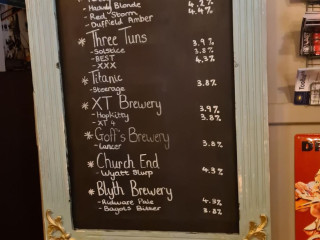 - Hasady Blonde 4.2%
- Red Storm 4.4%
- Duffield Amber
* Three Tuns
- Solstice 3.9%
- BEST 3.8%
- XXX 4.3%
* Titanic
- Steerage 3.8%
* XT Brewery
- Hopkitty 3.9%
- XT 4 3.8%
* Goff's Brewery
- Lancer 3.8%
* Church End
- Wyatt Burp 4.3%
* Blyth Brewery
- Ridware Pale 4.3%
- Bagots Bitter 3.8%